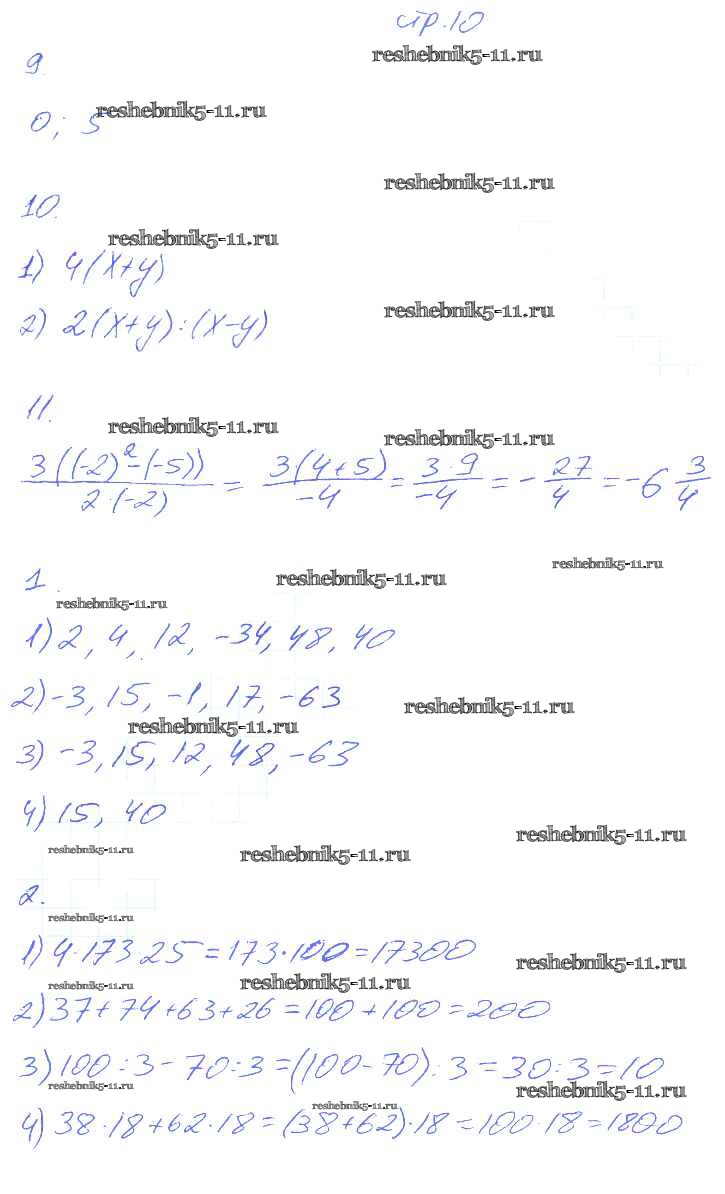 стр.10
reshebnik5-11.ru
9.
reshebnik5-11.ru
0; 5
reshebnik5-11.ru
10.
reshebnik5-11.ru
1) 4(x+y)
reshebnik5-11.ru
2) 2(x+y):(x-y)
11.
reshebnik5-11.ru
reshebnik5-11.ru
3((-2)²-(-5))/2·(-2) = 3(4+5)/-4 = 3·9/-4 = -27/4 = -6 3/4
reshebnik5-11.ru
1.
reshebnik5-11.ru
reshebnik5-11.ru
1) 2, 4, 12, -34, 48, 40
2) -3, 15, -1, 17, -63
reshebnik5-11.ru
reshebnik5-11.ru
3) -3, 15, 12, 48, -63
4) 15, 40
reshebnik5-11.ru
reshebnik5-11.ru
reshebnik5-11.ru
2.
reshebnik5-11.ru
1) 4·173·25=173·100=17300
reshebnik5-11.ru
reshebnik5-11.ru
reshebnik5-11.ru
2) 37+74+63+26=100+100=200
3) 100:3-70:3=(100-70):3=30:3=10
reshebnik5-11.ru
reshebnik5-11.ru
reshebnik5-11.ru
4) 38·18+62·18=(38+62)·18=100·18=1800